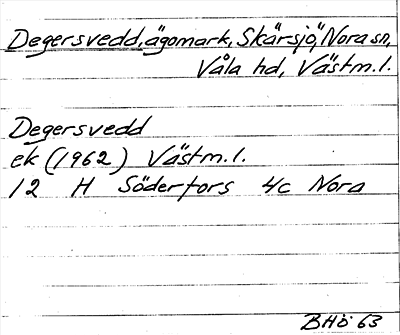 Degersvedd, ägomark, Skärsjö, Nora sn,
Våla hd, Västm.l.
Degersvedd
ek (1962) Västm.l.
12 H Söderfors 4c Nora
BHö 63